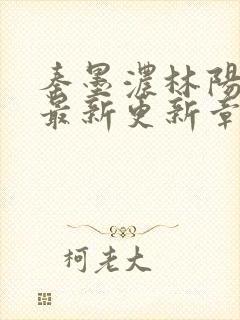 秦墨濃林陽
最新更新章
柯老大